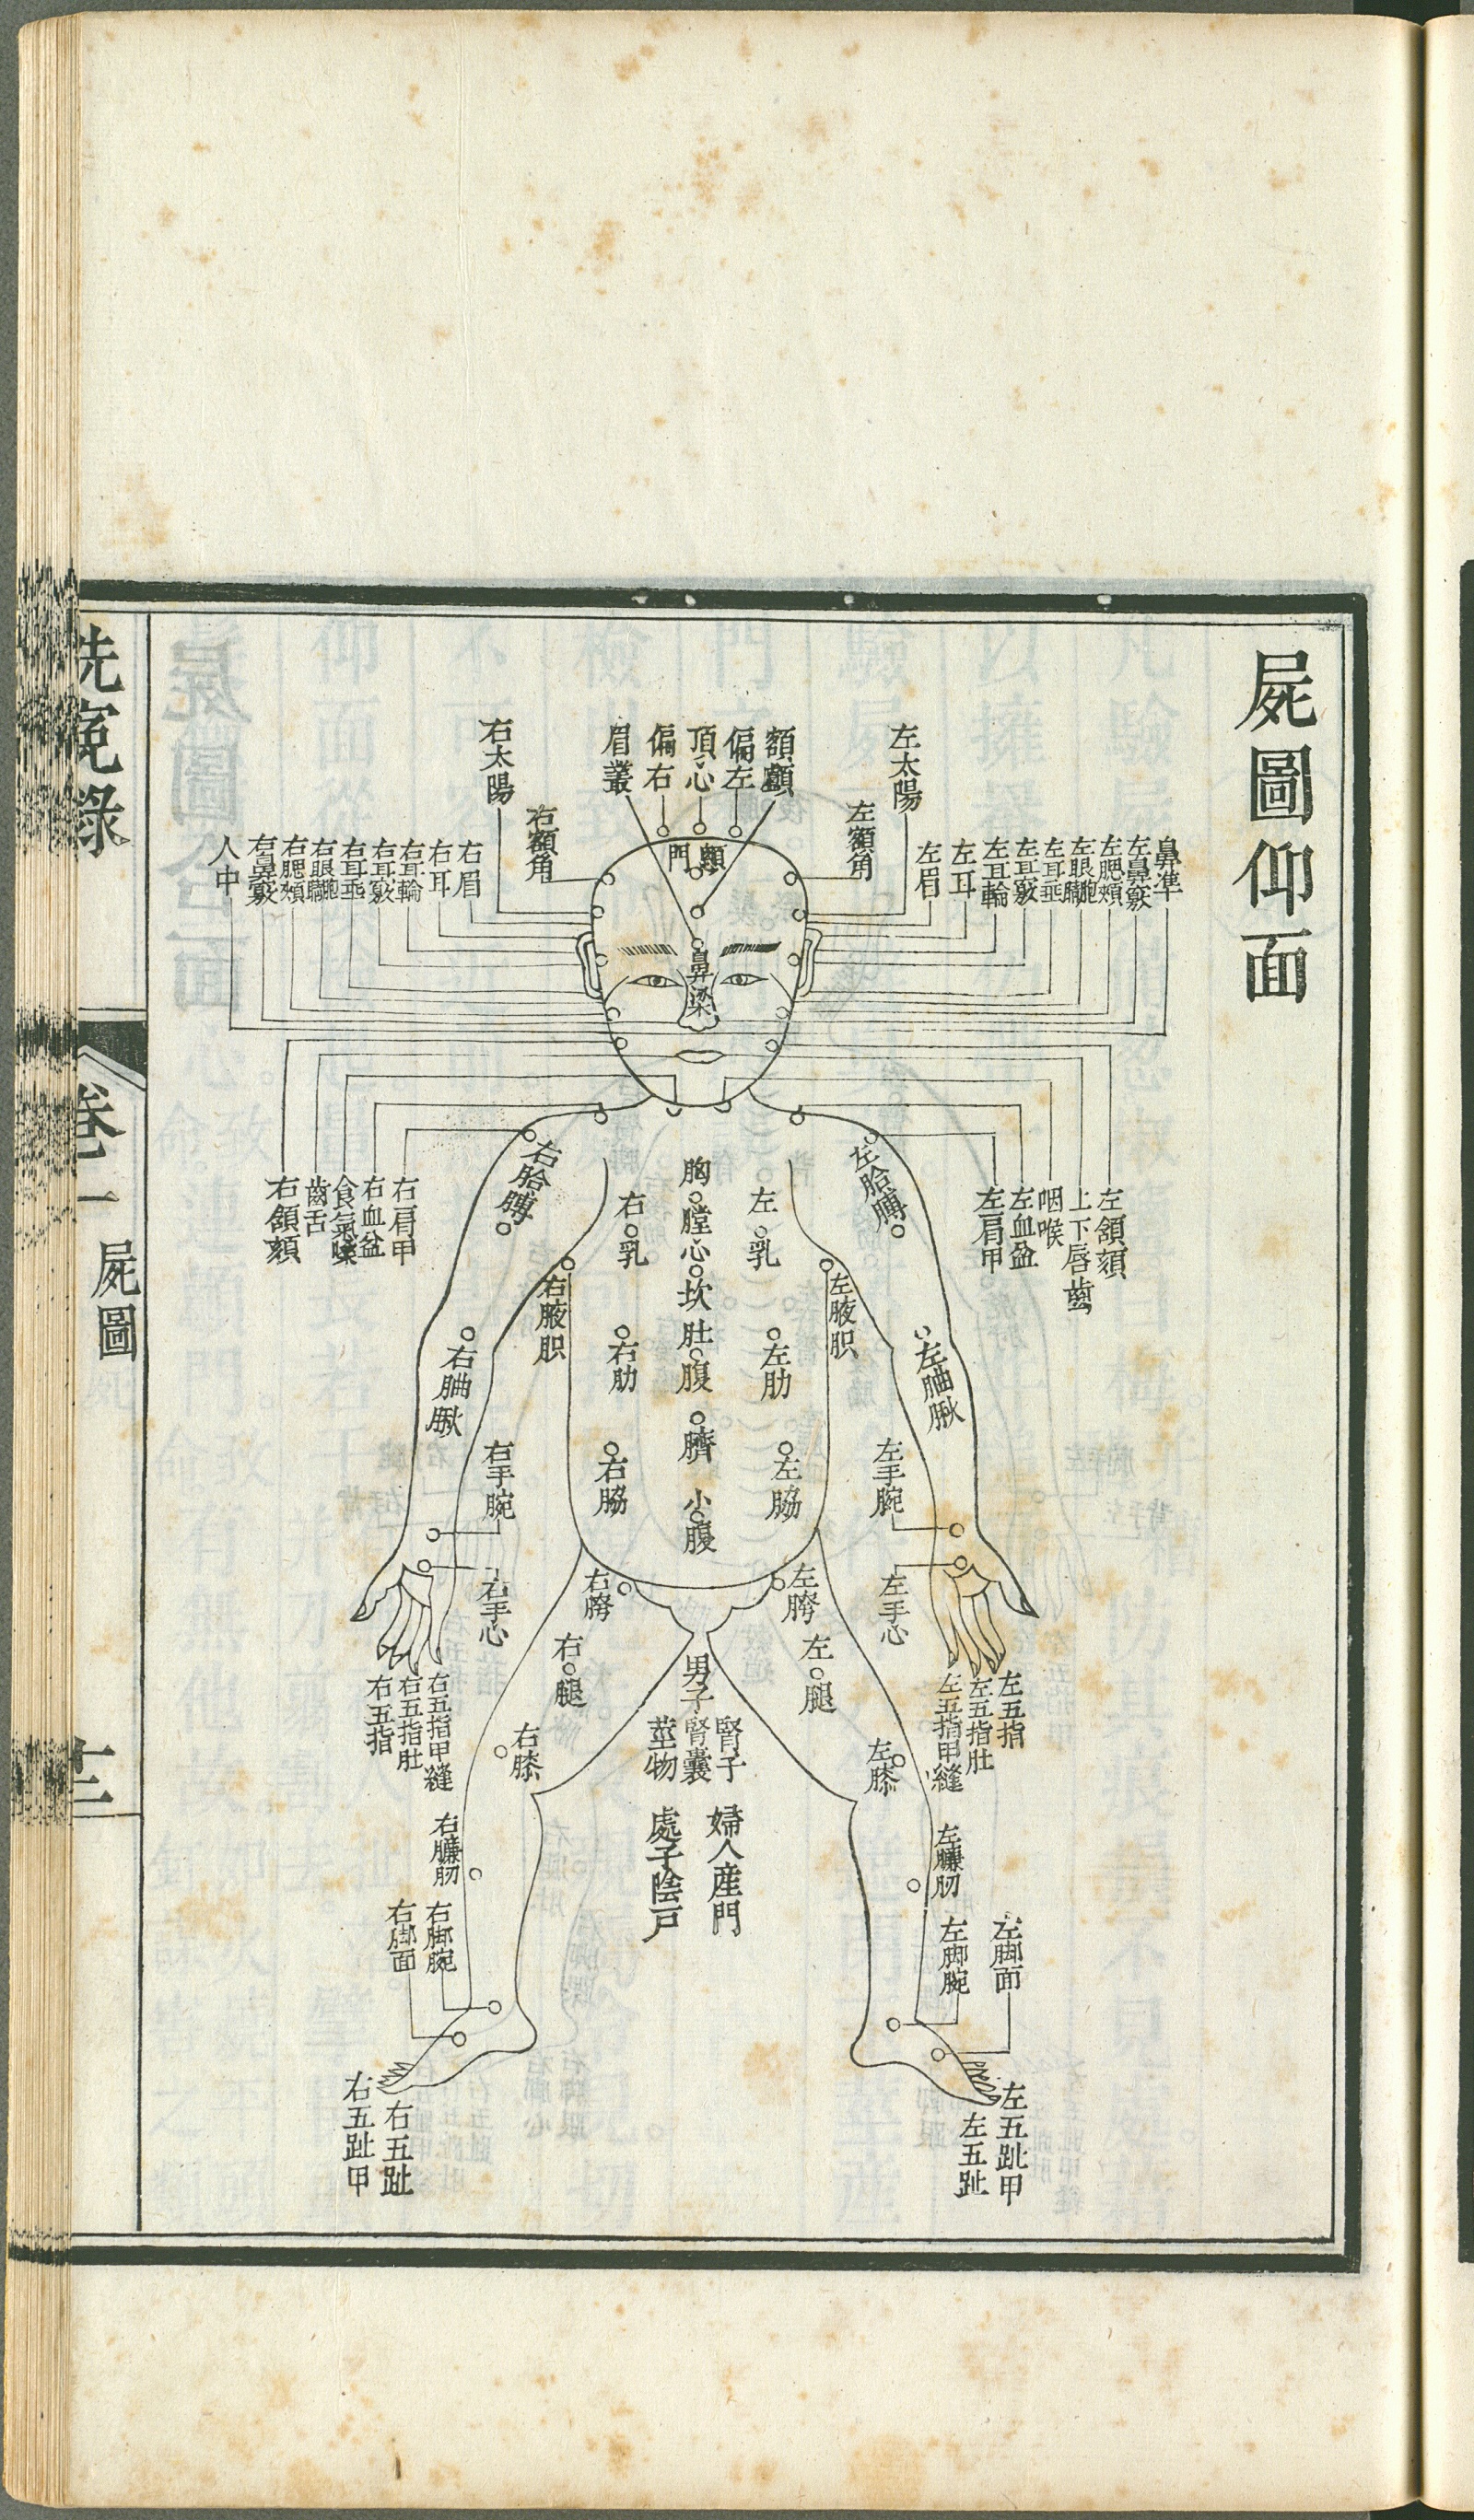 屍圖仰面
額顱
偏左
頂心
偏右
眉叢
顖門
左太陽
左額角
右額角
右太陽
鼻準
左鼻竅
左腮頰
左眼胞
左耳垂
左耳竅
左耳輪
左耳
左眉
右眉
右耳
右耳輪
右耳竅
右耳垂
右眼胞
右腮頰
右鼻竅
人中
鼻梁
左頷頦
上下唇齒
咽喉
左血盆
左肩甲
右肩甲
右血盆
食氣嗓
齒舌
右頷頦
左肐膊
右肐膊
胸膛
心坎
肚腹
臍
小腹
左乳
右乳
左腋胑
右腋胑
左肋
右肋
左脇
右脇
左䏔䐐
右䏔䐐
左手腕
右手腕
左手心
右手心
左胯
右胯
左腿
右腿
左五指
左五指肚
左五指甲縫
右五指甲縫
右五指肚
右五指
男子
腎子
腎囊
莖物
婦人產門
處子陰戸
左膝
右膝
左臁肕
右臁肕
左脚面
左脚腕
右脚腕
右脚面
左五趾甲
左五趾
右五趾
右五趾甲
洗寃錄
卷一
屍圖
十二